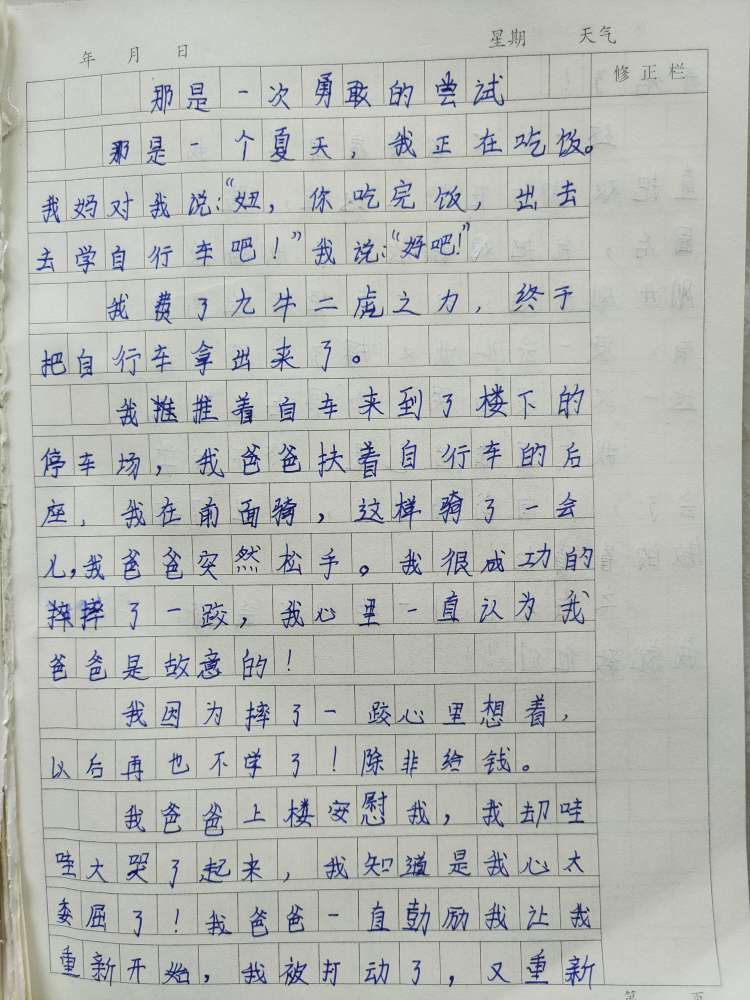 年 月 日 星期 天气
修正栏
那是一次勇敢的尝试
那是一个夏天，我正在吃饭。
我妈对我说：“妞，你吃完饭，出去
去学自行车吧！”我说：“好吧！”
我费了九牛二虎之力，终于
把自行车拿出来了。
我推推着自车来到了楼下的
停车场，我爸爸扶着自行车的后
座，我在前面骑，这样骑了一会
儿，我爸爸突然松手。我很成功的
摔摔了一跤，我心里一直认为我
爸爸是故意的！
我因为摔了一跤心里想着，
以后再也不学了！除非给钱。
我爸爸上楼安慰我，我却哇
哇大哭了起来，我知道是我心太
委屈了！我爸爸一直鼓励我让我
重新开始，我被打动了，又重新
第 页